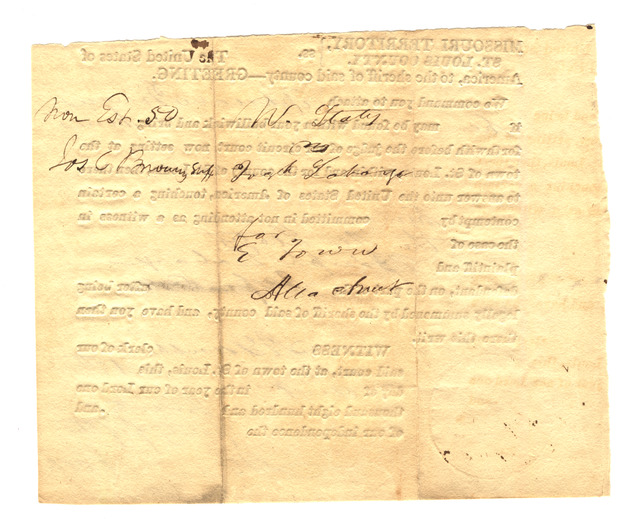 MISSOURI TERRITORY,
ST. LOUIS COUNTY.
ss. The United States of
America, to the sheriff of said county—GREETING.
We command you to attach
if may be found within your bailiwick and bring
forthwith before the judge of circuit court now setting at the
town of St. Louis
to answer unto the United States of America, touching a certain
contempt by committed in not attending as a witness in
the case of
plaintiff and
defendant, on the after being
legally summoned by the sheriff of said county, and have you then
there this writ.
WITNESS clerk of our
said court, at the town of St. Louis, this
day of in the year of our Lord one
thousand eight hundred and and
of our independence the
Non Est 50.
Jos C Brown Shff
U. States
vs
for
E Town
Attachment